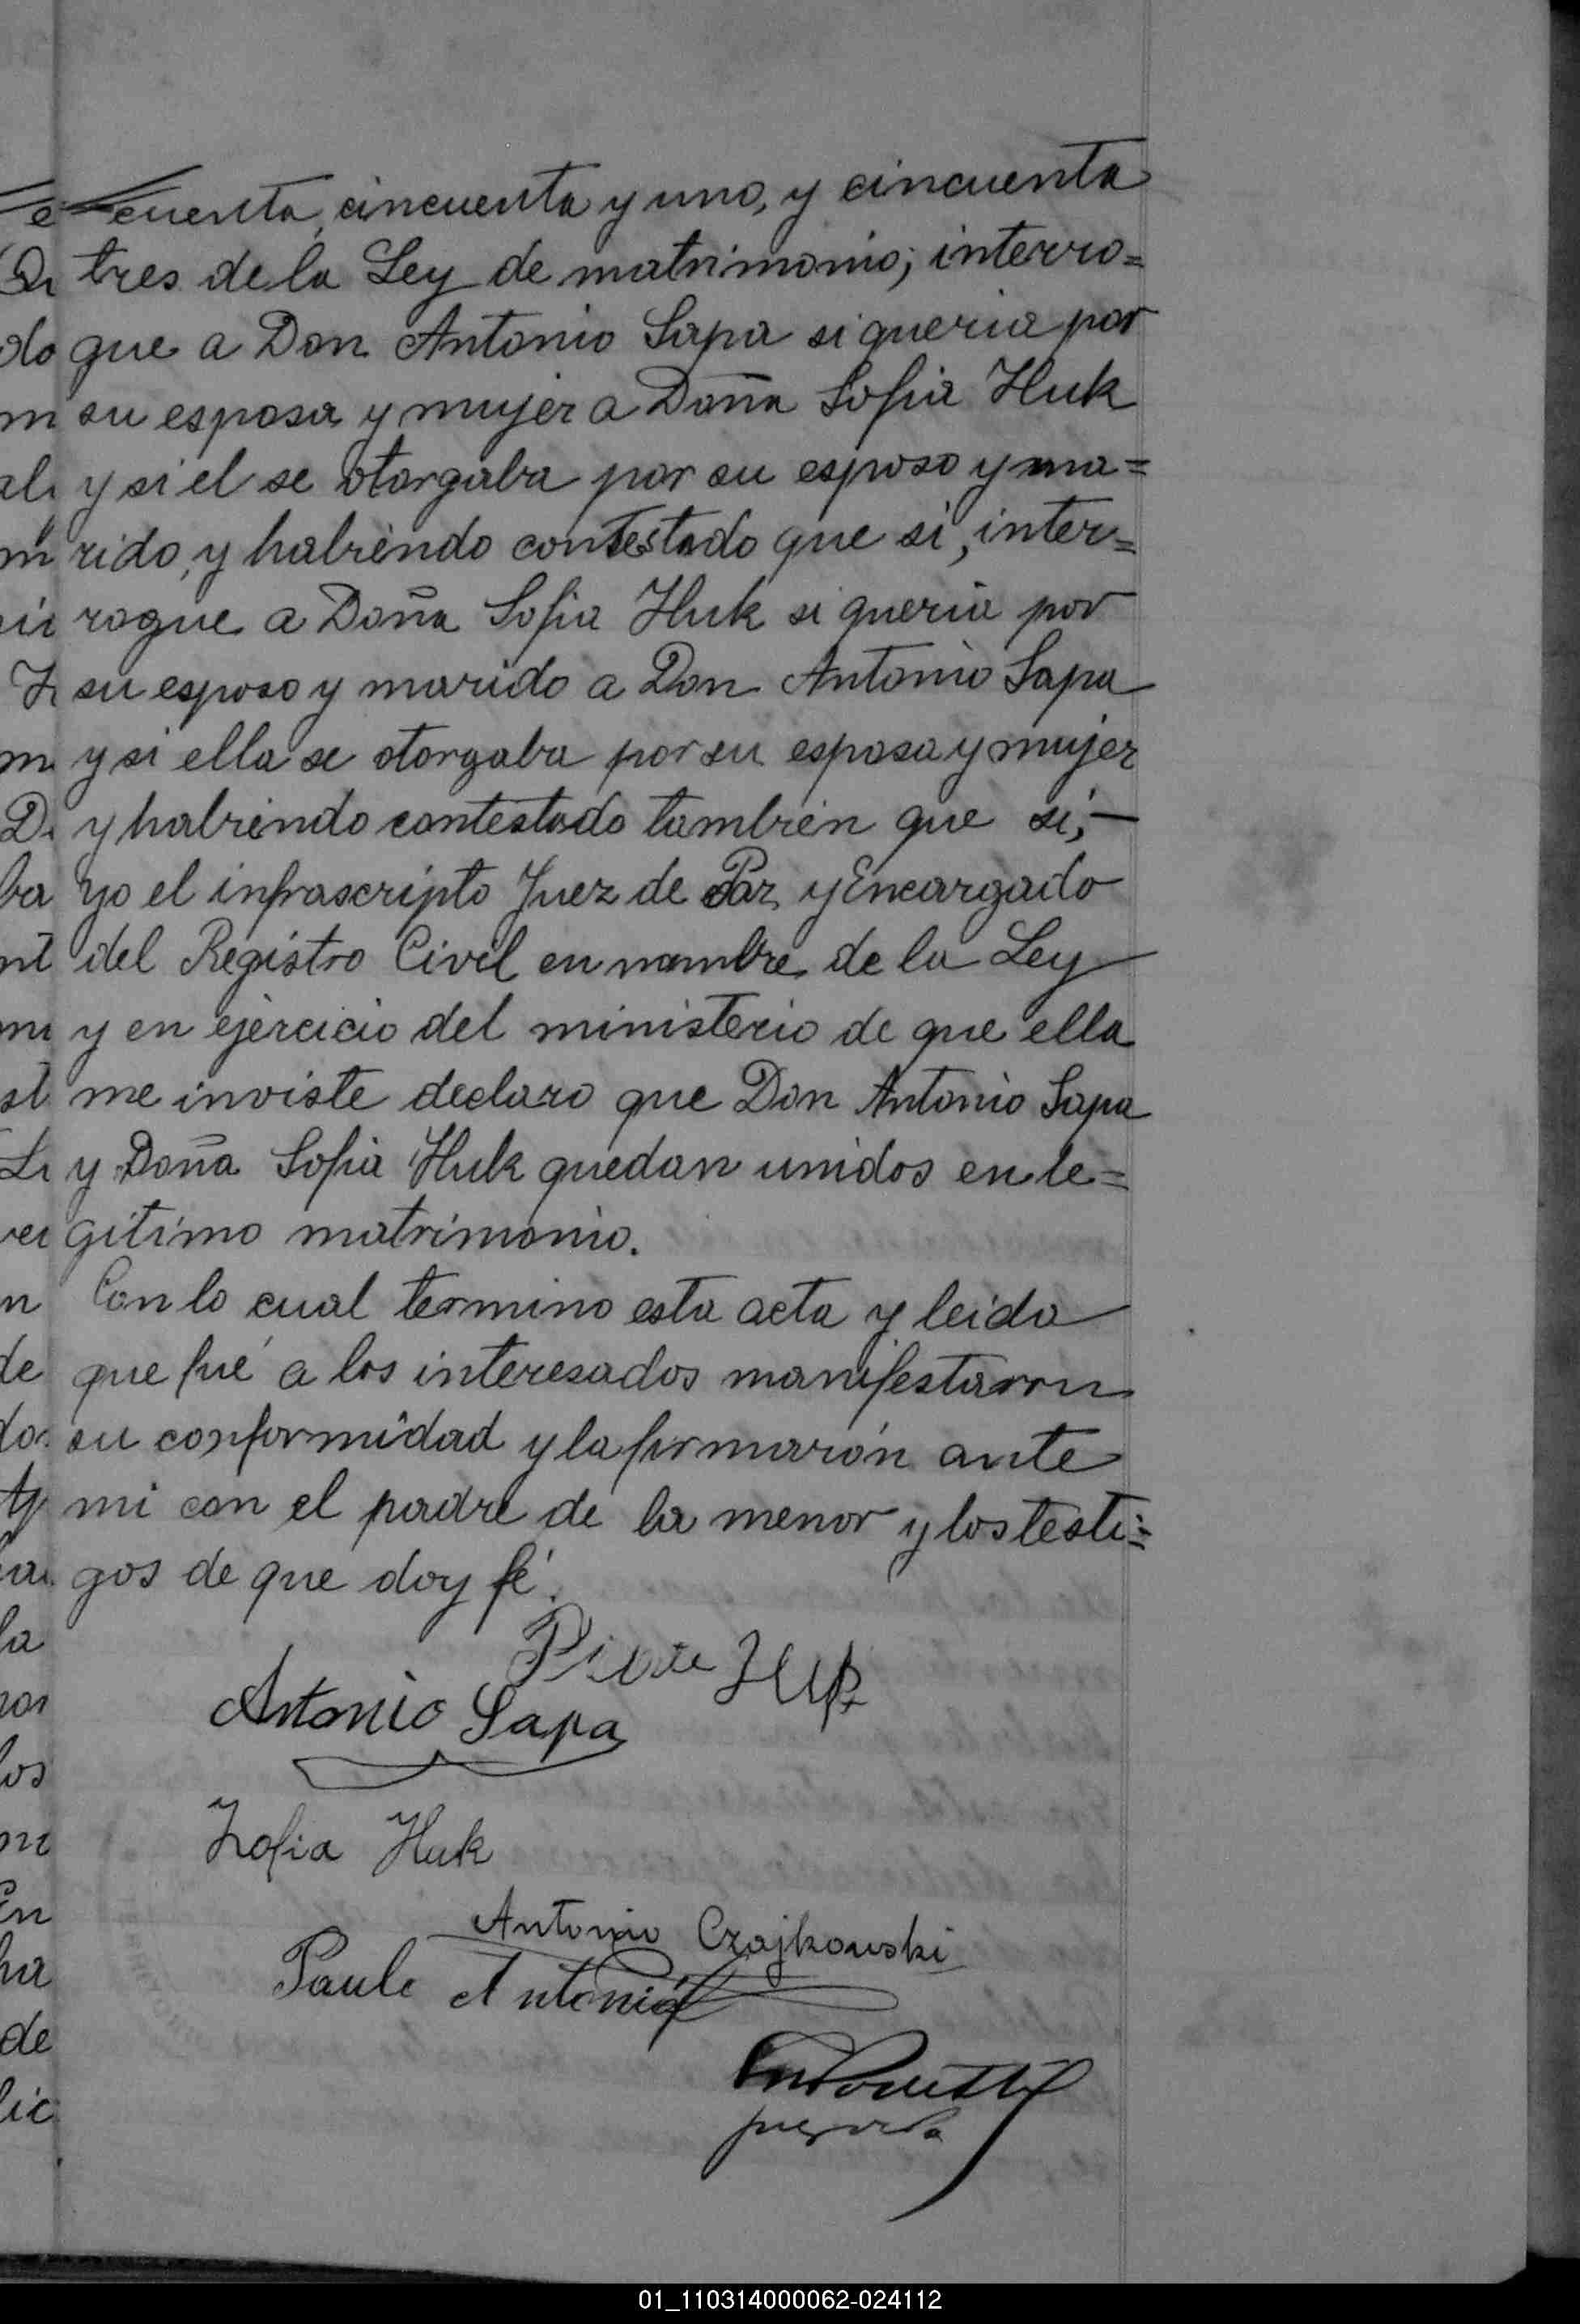 cuenta, cincuenta y uno, y cincuenta
tres de la Ley de matrimonio; interro=
gue a Don Antonio Sapa si queria por
su esposa y mujer a Doña Sofia Huk
y si el se otorgaba por su esposo y ma=
rido, y habiendo contestado que si, inter=
rogue a Doña Sofia Huk si queria por
su esposo y marido a Don Antonio Sapa
y si ella se otorgaba por su esposa y mujer
y habiendo contestado tambien que si,—
yo el infrascripto Juez de Paz y Encargado
del Registro Civil en nombre de la Ley
y en ejercicio del ministerio de que ella
me inviste declaro que Don Antonio Sapa
y Doña Sofia Huk quedan unidos en le=
gitimo matrimonio.
Con lo cual termino esta acta y leida
que fué a los interesados manifestaron
su conformidad y la firmarón ante
mi con el padre de la menor y los testi=
gos de que doy fé.
Huk
Antonio Sapa
Zofia Huk
Antonio Czajkowski
Paulo Antonio
01_110314000062-024112